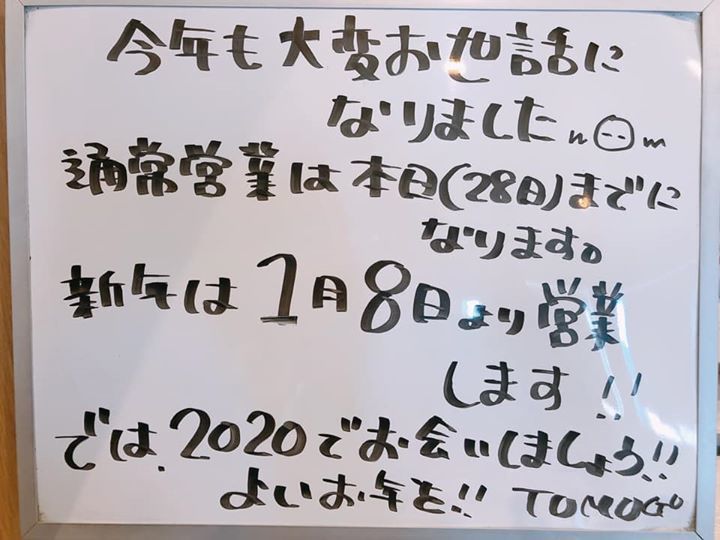 今年も大変お世話に
なりましたm(--)m
通常営業は本日(28日)までに
なります。
新年は1月8日より営業
します!!
では、2020でお会いしましょう!!
よいお年を!! TOMOGO